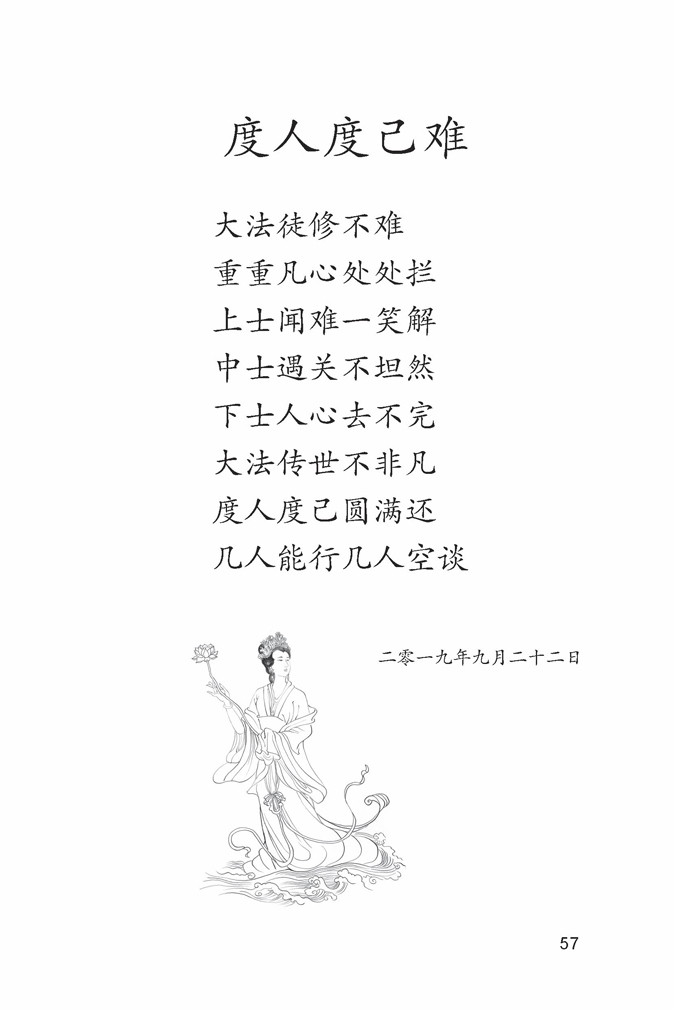 度人度己难
大法徒修不难
重重凡心处处拦
上士闻难一笑解
中士遇关不坦然
下士人心去不完
大法传世不非凡
度人度己圆满还
几人能行几人空谈
二零一九年九月二十二日
57